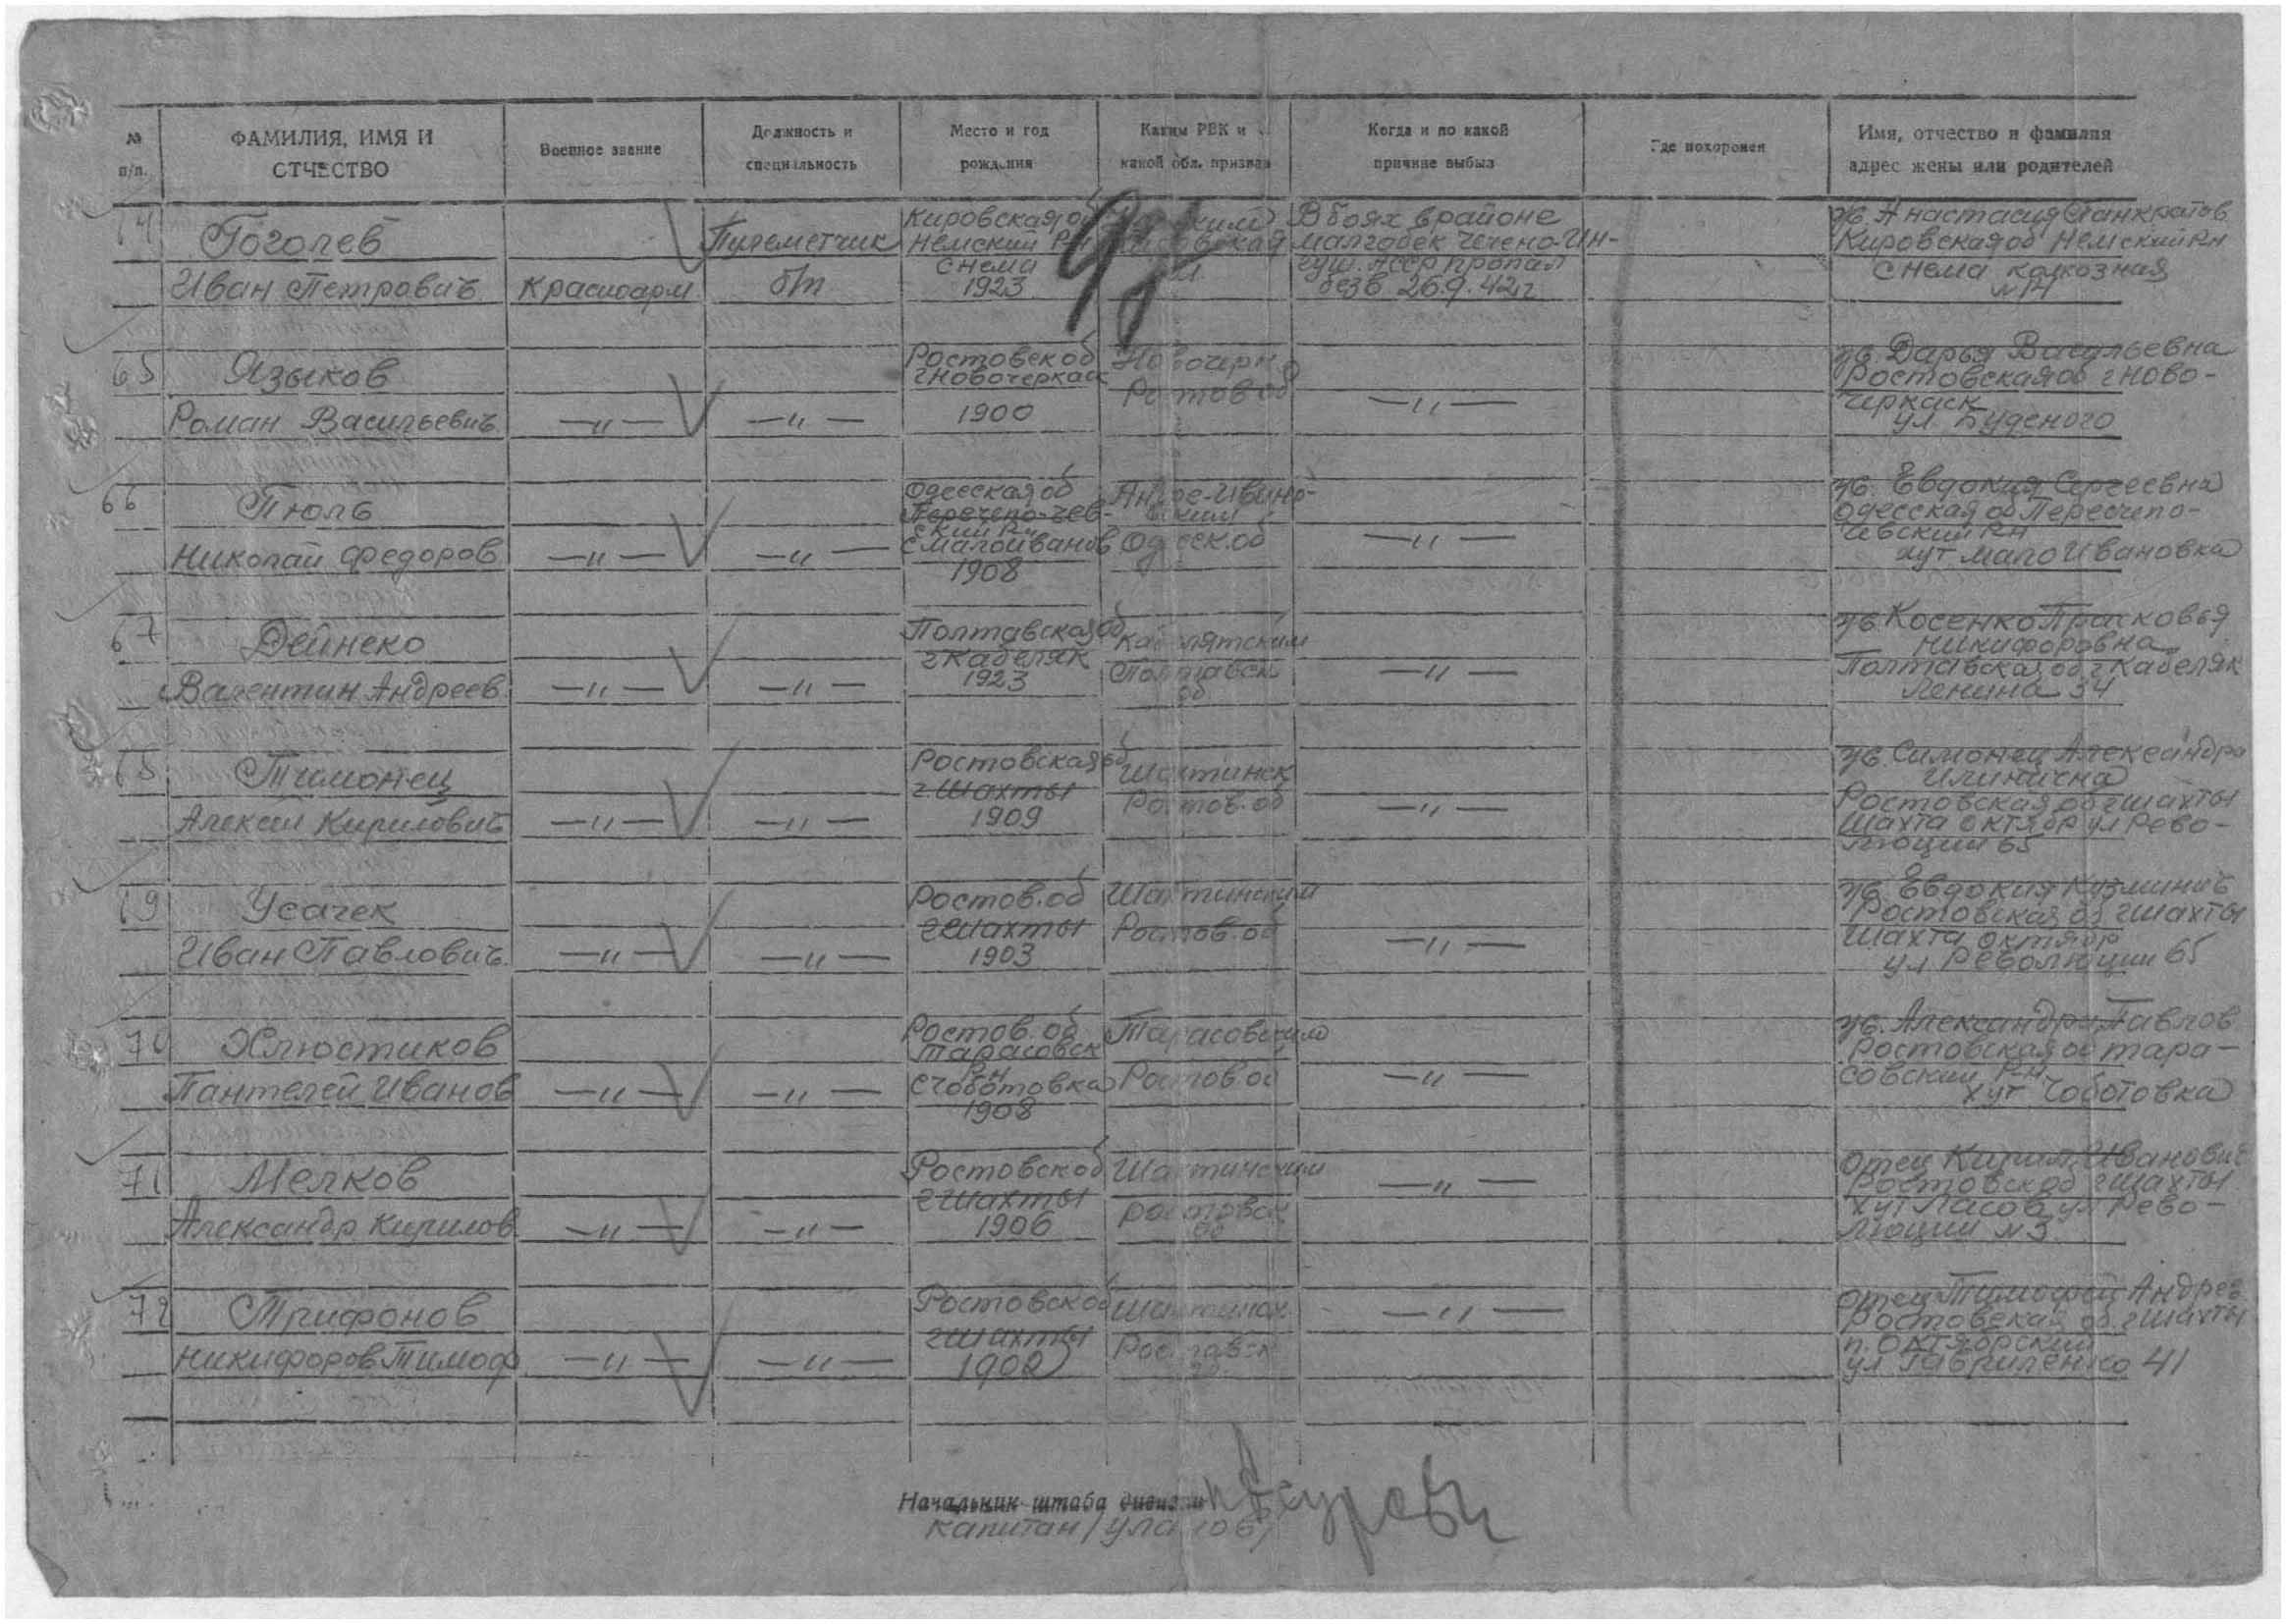 № п/п.
ФАМИЛИЯ, ИМЯ И ОТЧЕСТВО
Военное звание
Должность и специальность
Место и год рождения
Каким РВК и какой обл. призван
Когда и по какой причине выбыл
Где похоронен
Имя, отчество и фамилия адрес жены или родителей
Гоголев
Иван Петровичъ
Красноарм
Пулеметчик
б/п
Кировская об
Немский Рн
с Нема
1923
В боях в районе
Малгобек Чечено-Ин-
гуш. АССР пропал
без в 26.9.42г
жв. Анастасия Панкратов
Кировская об Немский Рн
с Нема колхозная
N 14
65
Языков
Роман Васильевич
—"—
—"—
Ростовск об
г Новочеркаск
1900
Новочерк
Ростов об
—"—
жв. Дарья Васильевна
Ростовская об г Ново-
черкаск
ул. Буденого
66
Тюль
Николай Федоров
—"—
—"—
Одесская об
ский Рн
с Малоиванов
1908
Одесск.об
—"—
жв. Евдокия Сергеевна
Одесская об
чевский Рн
хут Мало Ивановка
67
Дейнеко
Валентин Андреев
—"—
—"—
Полтавская об
г Кабеляк
1923
Кабелятским
Полтавск
об
—"—
жв Косенко Прасковья
Никифоровна
Полтавская об г Кабеляк
Ленина 34
68
Тимонец
Алексей Кирилович
—"—
—"—
Ростовская об
г Шахты
1909
Шахтинск
Ростов.об
—"—
жв. Симонец Александра
Илинична
Ростовская об г Шахты
Шахта Октябр ул Рево-
люции 65
69
Усачек
Иван Павлович
—"—
—"—
Ростов.об
г Шахты
1903
Шахтинским
Ростов.об
—"—
жв. Евдокия Кузминич
Ростовская об г Шахты
Шахта Октябр
ул Революции 65
70
Хлюстиков
Пантелей Иванов
—"—
—"—
Ростов.об
Тарасовск
Рн
с Чоботовка
1908
Тарасовским
Ростов.об
—"—
жв. Александра Павлов
Ростовская об Тара-
совский Рн
хут Чоботовка
71
Мелков
Александр Кирилов
—"—
—"—
Ростовск об
г Шахты
1906
Шахтинским
Ростовск
об
—"—
Отец Кирил Иванович
Ростовск об г Шахты
хут Ласов ул Рево-
люции N 3
72
Трифонов
Никифоров Тимоф
—"—
—"—
Ростовск об
г Шахты
1902
Шахтинск.
Ростовск
об
—"—
Отец Тимофей Андрев
Ростовская об г Шахты
п. Октябрский
ул Гавриленко 41
Начальник штаба дивизии
Капитан